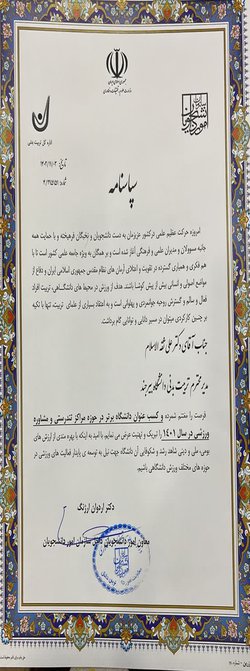 جمهوری اسلامی ایران
سازمان امور دانشجویان
اداره کل تربیت بدنی
تاریخ:
شماره:
سپاسنامه
امروزه حرکت عظیم علمی در کشور عزیزمان به دست دانشجویان و نخبگان فرهیخته و با حمایت همه
جانبه مسئولان و مدیران علمی و فرهنگی آغاز شده است و بر همگان به ویژه جامعه علمی کشور است تا با
هم فکری و همیاری گسترده در تقویت و اعتلای آرمان های نظام مقدس جمهوری اسلامی ایران و دفاع از
مواضع اصولی و اساسی بیش از پیش کوشا باشند. هدف از ورزش در محیط های دانشگاهی، تربیت افراد
فعال و سالم و گسترش روحیه جوانمردی و پهلوانی است و به اعتقاد بسیاری از علمای تربیت، تنها با تکیه
بر چنین کارکردی میتوان در مسیر دانایی و توانایی گام برداشت.
جناب آقای دکتر علی ثقه الاسلام
مدیر محترم تربیت بدنی دانشگاه بیرجند
فرصت را مغتنم شمرده و کسب عنوان دانشگاه برتر در حوزه مراکز تندرستی و مشاوره
ورزشی در سال ۱۴۰۱ را تبریک و تهنیت عرض می نمایم. با امید به اینکه با بهره مندی از ارزش های
بومی، ملی و دینی شاهد رشد و شکوفایی آن دانشگاه جهت نیل به توسعه ی پایدار فعالیت های ورزشی در
حوزه های مختلف ورزش دانشگاهی باشیم.
دکتر اردوان ارژنگ
معاون امور دانشجویان داخل سازمان امور دانشجویان